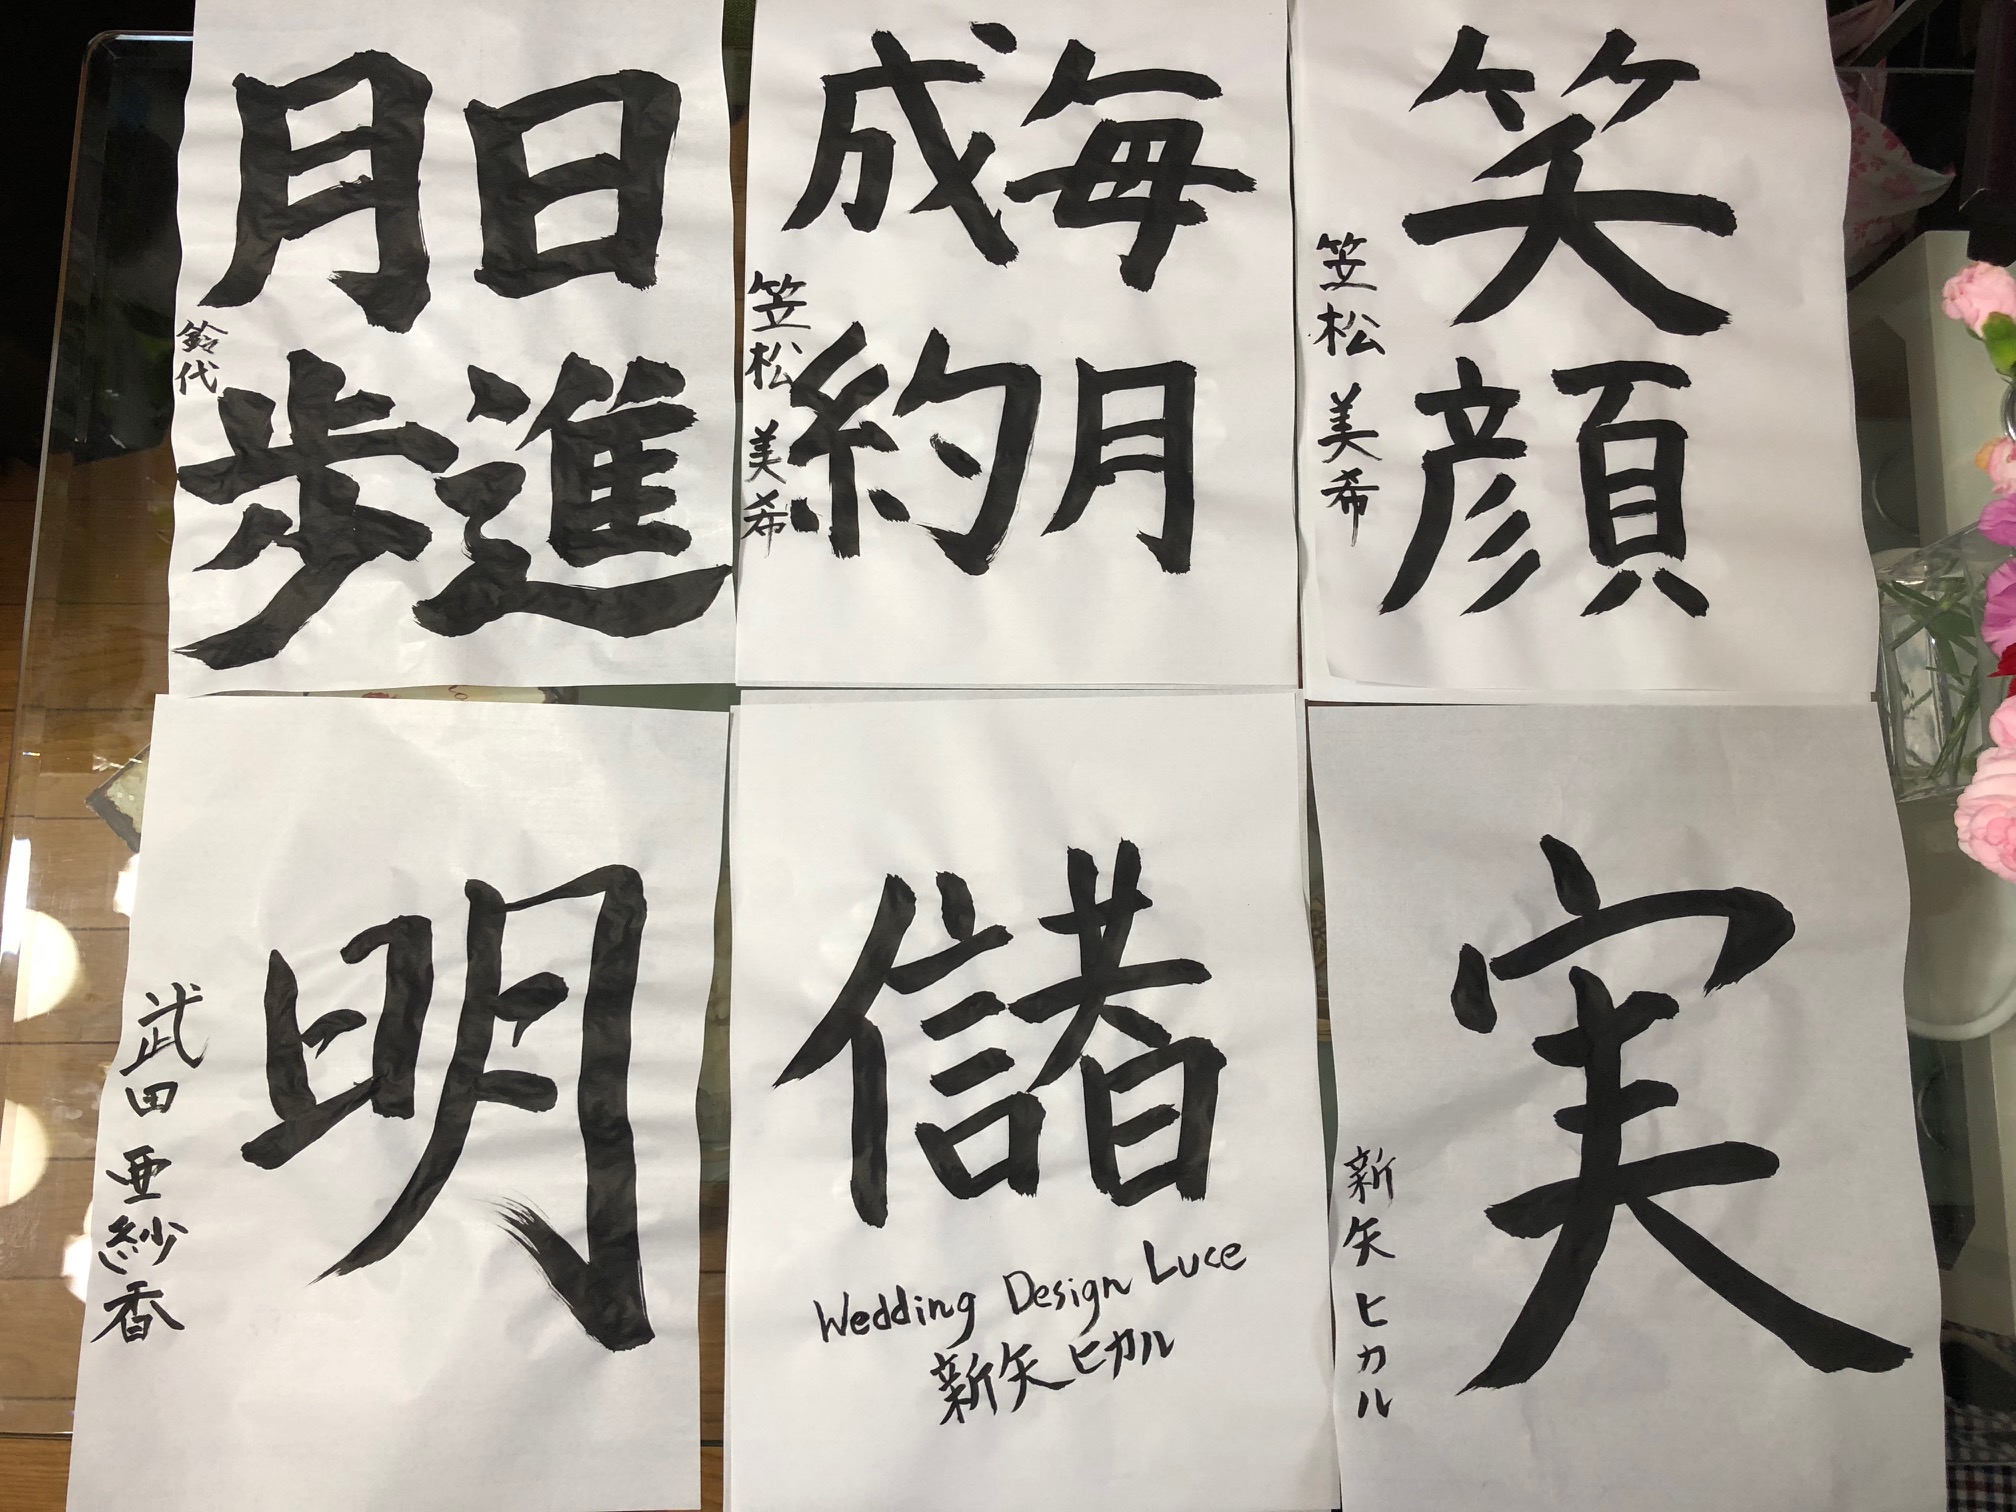 日進
月歩
鈴代
毎月
成約
笠松 美希
笑顔
笠松 美希
明
武田 亜紗香
儲
Wedding Design Luce
新矢 ヒカル
実
新矢 ヒカル